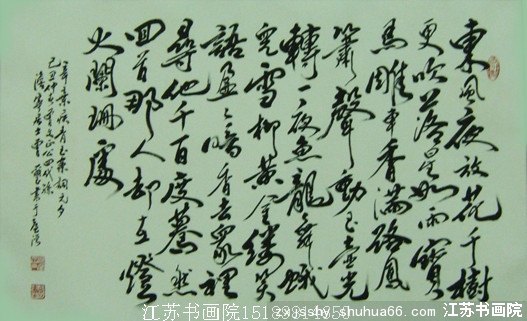 東風夜放花千樹
更吹落星如雨寶
馬雕車香滿路鳳
簫聲動玉壺光
轉一夜魚龍舞蛾
兒雪柳黃金縷笑
語盈々暗香去眾裡
尋他千百度驀然
回首那人却在燈
火闌珊處
辛棄疾青玉案詞元夕
己丑仲春曾文正公四代孫
居士
江苏书画院
shuhua66.com 江苏书画院